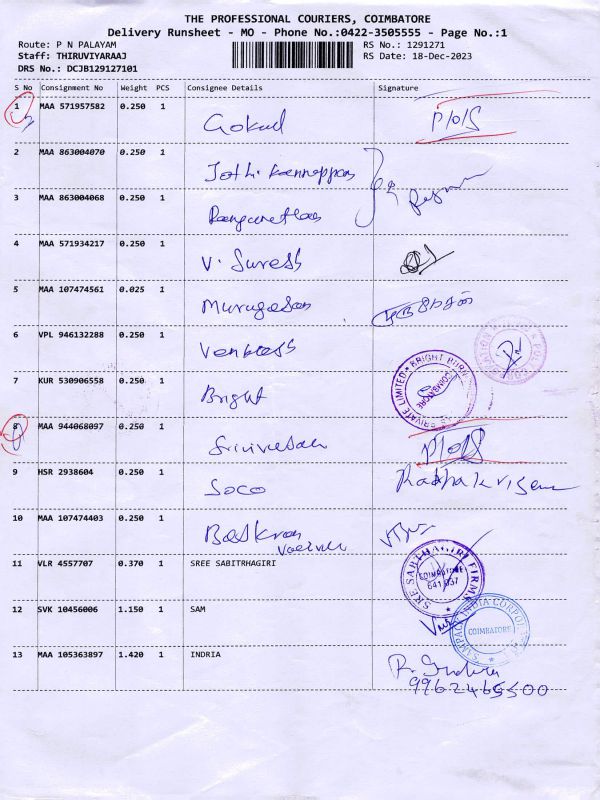 THE PROFESSIONAL COURIERS, COIMBATORE
Delivery Runsheet - MO - Phone No.:0422-3505555 - Page No.:1
Route: P N PALAYAM RS No.: 1291271
Staff: THIRUVIYARAAJ RS Date: 18-Dec-2023
DRS No.: DCJB129127101
S No Consignment No Weight PCS Consignee Details Signature
1 MAA 571957582 0.250 1 Gokul
2 MAA 863004070 0.250 1 Jothi Kannappan
3 MAA 863004068 0.250 1
4 MAA 571934217 0.250 1 V. Suresh
5 MAA 107474561 0.025 1 Murugesan முருகேசன்
6 VPL 946132288 0.250 1 Venkatesh
7 KUR 530906558 0.250 1 Bright
BRIGHT
PRIVATE LIMITED
COIMBATORE
8 MAA 944068097 0.250 1 Srinivasan
9 HSR 2938604 0.250 1 Soco Radhakrisan
10 MAA 107474403 0.250 1 Baskran
11 VLR 4557707 0.370 1 SREE SABITRHAGIRI
SREE SABTHAGIRI FIRMS
COIMBATORE
641 037
12 SVK 10456006 1.150 1 SAM
SAMPACK INDIA CORPO
COIMBATORE
13 MAA 105363897 1.420 1 INDRIA R. Indira
9962465500